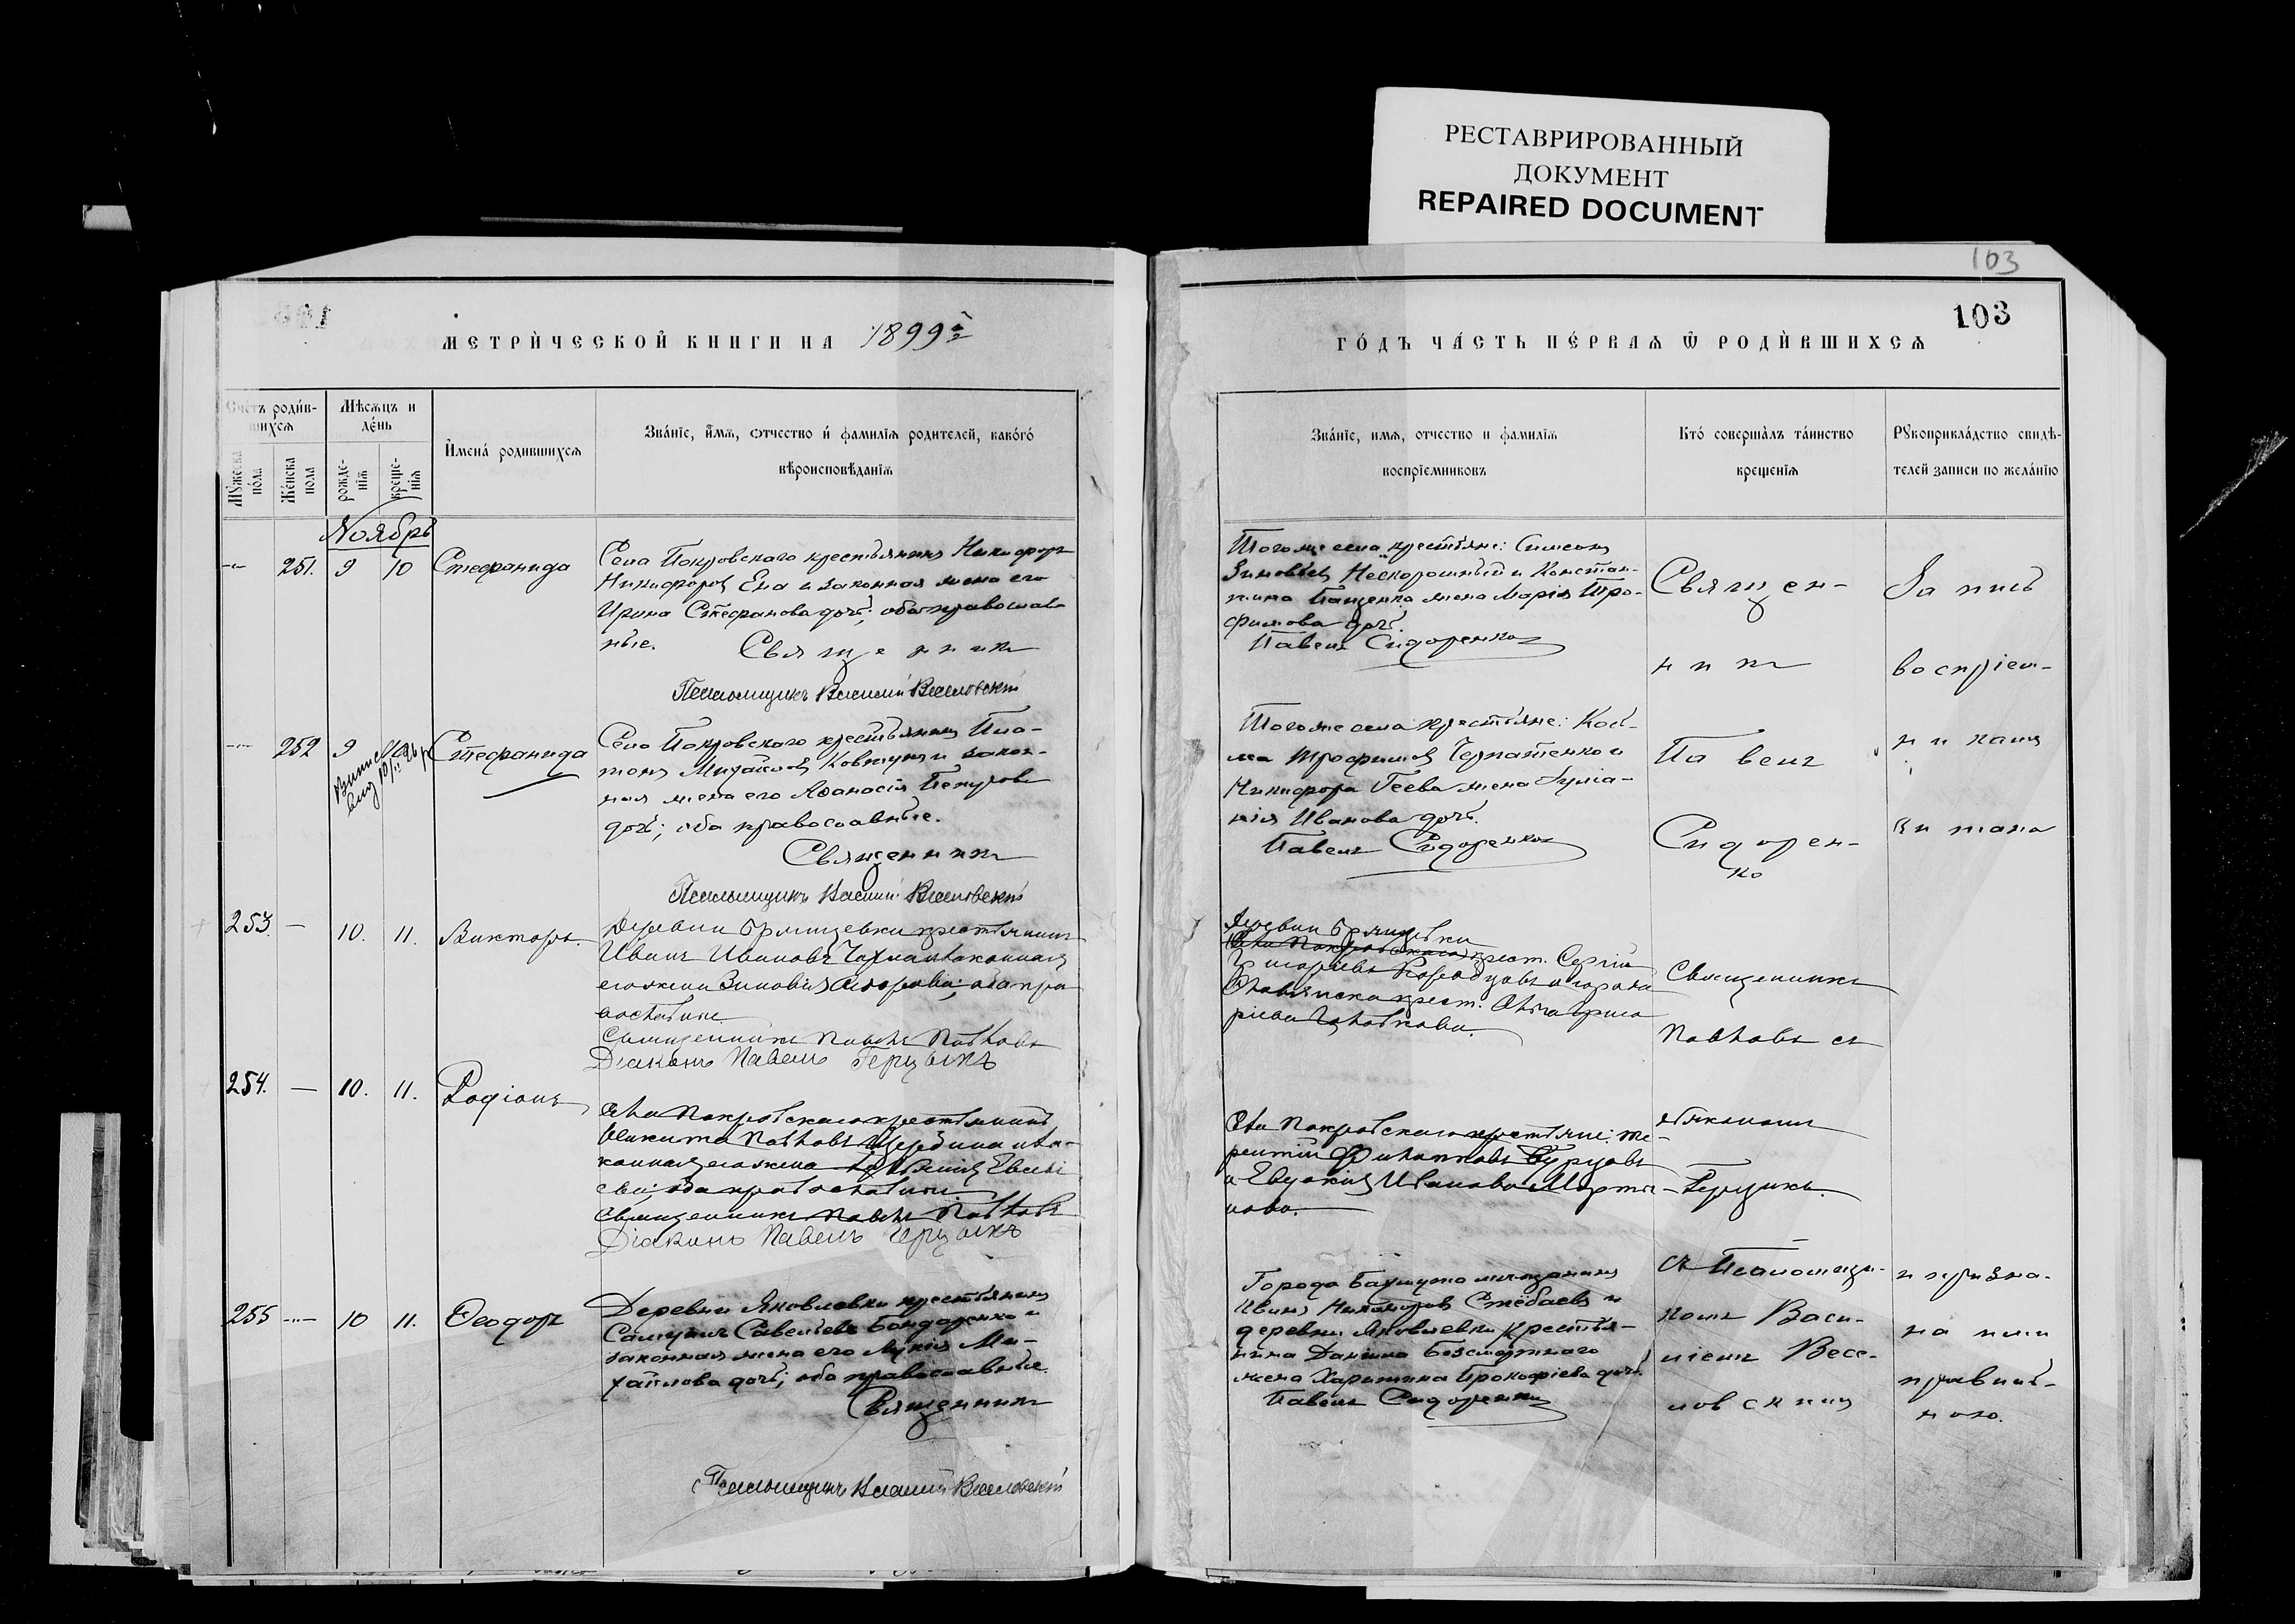 РЕСТАВРИРОВАННЫЙ
ДОКУМЕНТ
REPAIRED DOCUMENT
103
103
МЕТРИ́ЧЕСКОЙ КНИГИ НА 1899
ГО́ДЪ ЧА́СТЬ ПЕ́РВАѦ Ѿ РОДИ́ВШИХСѦ
Сче́тъ роди́в-
шихсѧ
Мѣсѧцъ и
де́нь
Мꙋ́жеска
по́ла
Же́нска
пола
рожде-
нїѧ
креще-
нїѧ
И҆мена́ родившихсѧ
Зва́нїе, и҆́мѧ, ѻтчество и́ фамилїѧ родителей, како́го́
вѣроисповѣданїѧ
Зва́нїе, имѧ, отчество и фамилїѧ
воспрїемниковъ
Кто́ соверша̀лъ та́инство
крещенїѧ
Рꙋкоприкла́дство свидѣ-
телей записи по жела́нїю
Ноябрь
251. 9 10 Стефанида
Села Покровскаго крестьянинъ Никифоръ
Никифоровъ Ена и законная жена его
Ирина Стефанова дочь; оба православ
ные.
Священникъ
Псаломщикъ Василій Веселовскій
Тогоже села крестьяне: Симеонъ
Зиновьевъ Нескоромный и Констан-
тина Пащенка жена Марія Тро-
фимова дочь.
Павелъ Сидоренко
Священ-
никъ
Павелъ
Сидорен-
ко
Запись
воспріем-
никами
читана
252 9 10 Стефанида
Села Покровскаго крестьянинъ Пла-
тонъ Михайловъ Ковтунъ и закон-
ная жена его Афанасія Петрова
дочь; оба православные.
Священникъ
Псаломщикъ Василій Веселовскій
Тогоже села крестьяне: Косъ-
ма Трофимовъ
Никифора Геева жена Іуліа-
нія Иванова дочь.
Павелъ Сидоренко
253. — 10. 11. Викторъ.
Деревни крестьянинъ
Иванъ Ивановъ законная
его жена Зиновія оба пра
вославные.
Священникъ Павелъ Павловъ
Діаконъ Павелъ Герцыкъ
Деревни
Села Покровскаго крест. Сергій
Григорьевъ
Славянска крест. Ольга Григо
рьева
Священникъ
Павловъ съ
254. — 10. 11. Родіонъ
Села Покровскаго крестьянинъ
Никита Павловъ Щербина и за-
конная его жена Евсеі
ева; оба православные.
Священникъ Павелъ Павловъ
Діаконъ Павелъ Герцыкъ
Села Покровскаго крестьяне: Те-
рентій Филипповъ Бурцовъ
и Евдокія Иванова Марты-
нова.
діакономъ
Герцыкъ.
255 — 10 11. Ѳеодоръ
Деревни Яковлевки крестьянинъ
Самуилъ Савельевъ Бондаренко и
законная жена его Лукія Ми-
хайлова дочь; оба православные.
Священникъ
Псаломщикъ Василій Веселовскій
Города Бахмута мѣщанинъ
Иванъ Никаноровъ и
деревни Яковлевки крестья-
нина Даніила Безсмертнаго
жена Харитина Прокофіева дочь.
Павелъ Сидоренко
съ Псаломщи-
комъ Васи-
ліемъ Весе-
ловскимъ
и призна-
на ими
правиль-
ною.